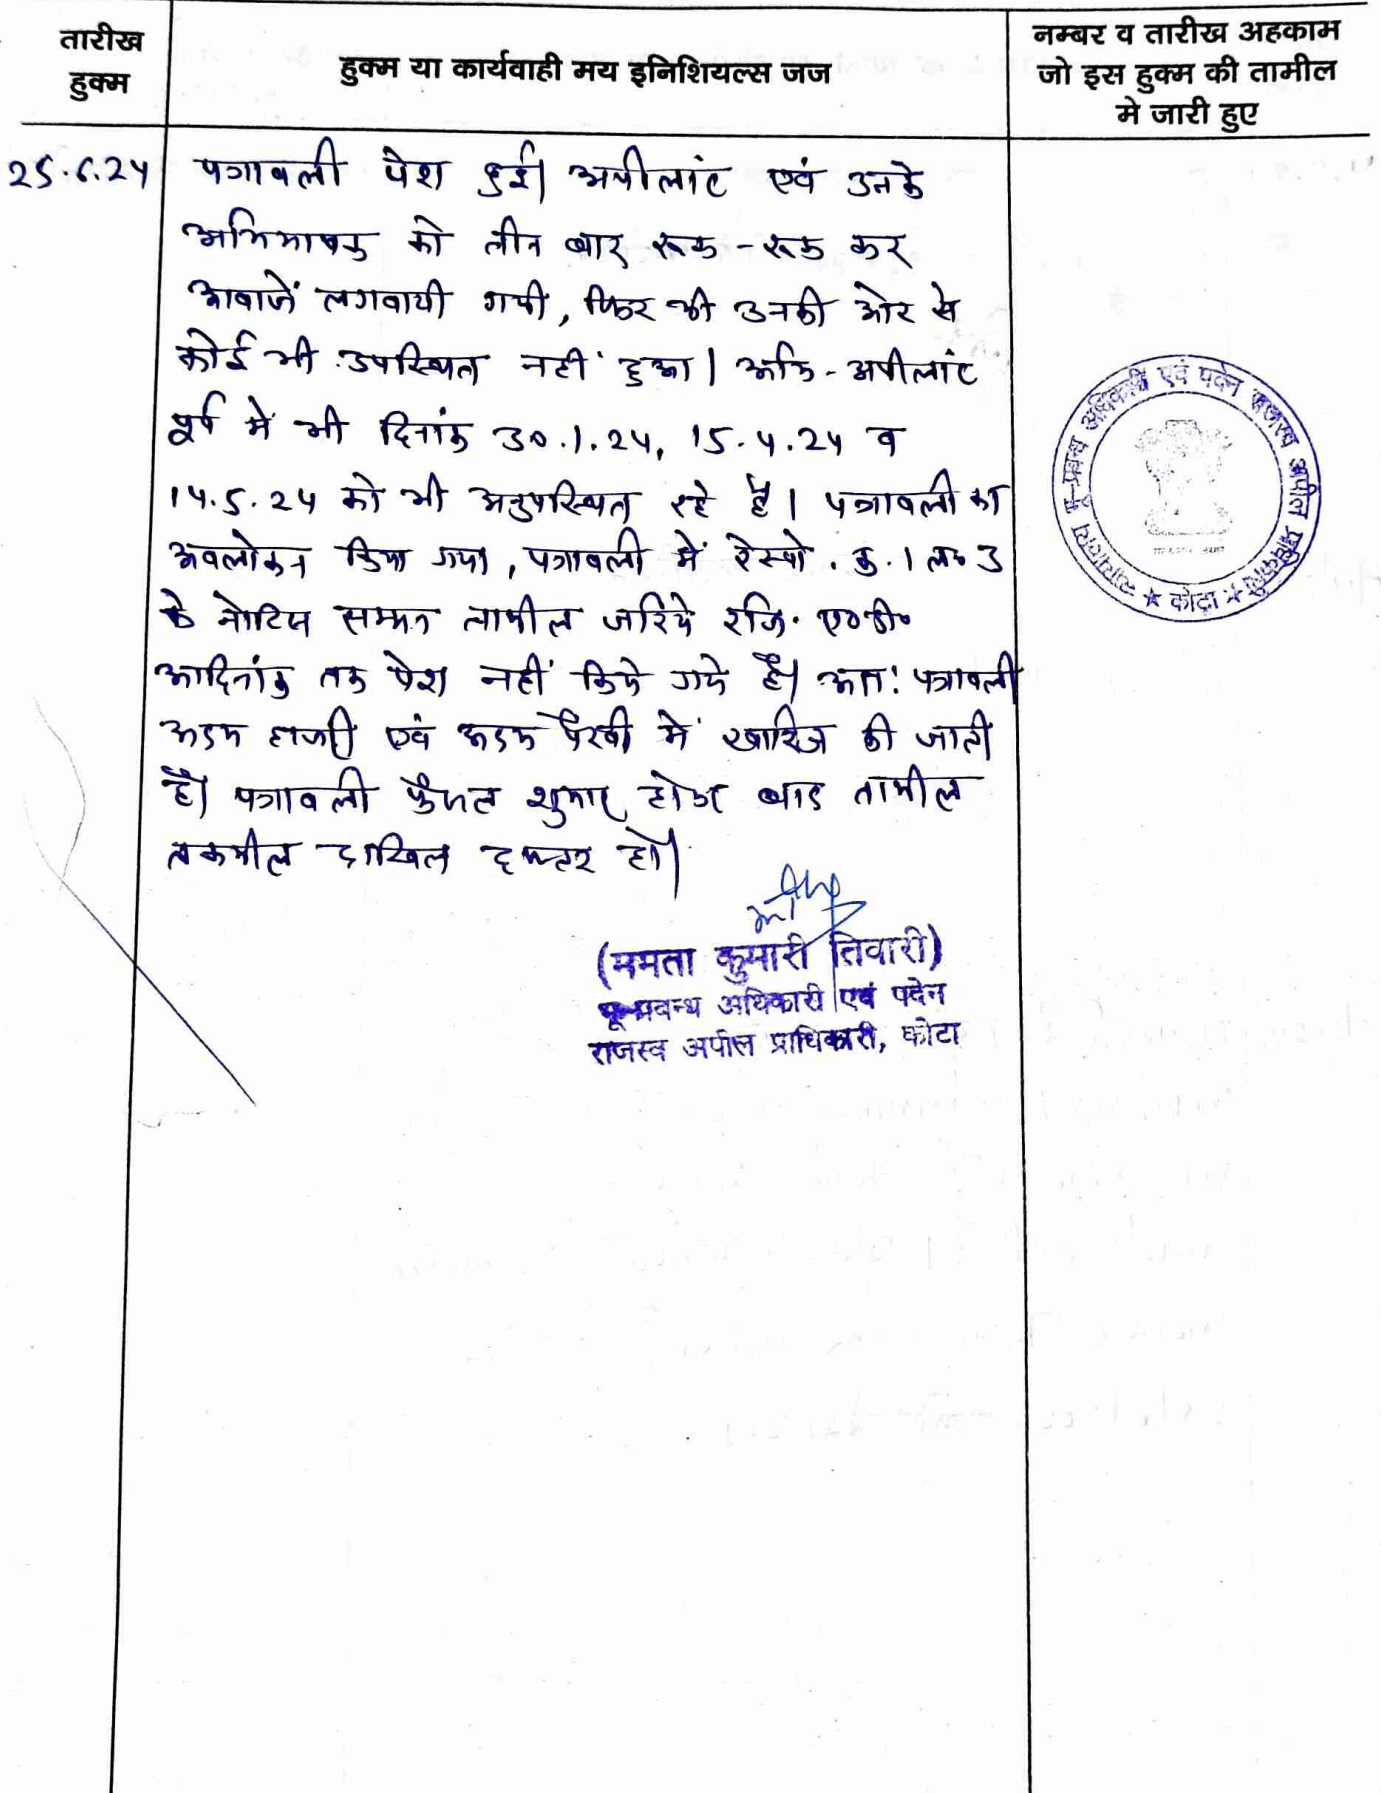 तारीख
हुक्म
हुक्म या कार्यवाही मय इनिशियल्स जज
नम्बर व तारीख अहकाम
जो इस हुक्म की तामील
मे जारी हुए
25.6.24 पत्रावली पेश हुई। अपीलांट एवं उनके
अभिभाषक को तीन बार रूक-रूक कर
आवाजें लगवायी गयी, फिर भी उनकी ओर से
कोई भी उपस्थित नहीं हुआ। अभि-अपीलांट
पूर्व में भी दिनांक 30.1.24, 15.4.24 व
14.5.24 को भी अनुपस्थित रहे है। पत्रावली का
अवलोकन किया गया, पत्रावली में रेस्पो. क्र.1 ल0 3
के नोटिस सम्मन तामील जरिये रजि. ए0डी0
आदिनांक तक पेश नहीं किये गये है। अतः पत्रावली
अदम हाजरी एवं अदम पैरवी में खारिज की जाती
है। पत्रावली फैसल शुमार होकर बाद तामील
तकमील दाखिल दफ्तर हो।
(ममता कुमारी तिवारी)
भू-प्रबन्ध अधिकारी एवं पदेन
राजस्व अपील प्राधिकारी, कोटा
न्यायालय भू-प्रबन्ध अधिकारी एवं पदेन राजस्व अपील प्राधिकारी
★ कोटा ★